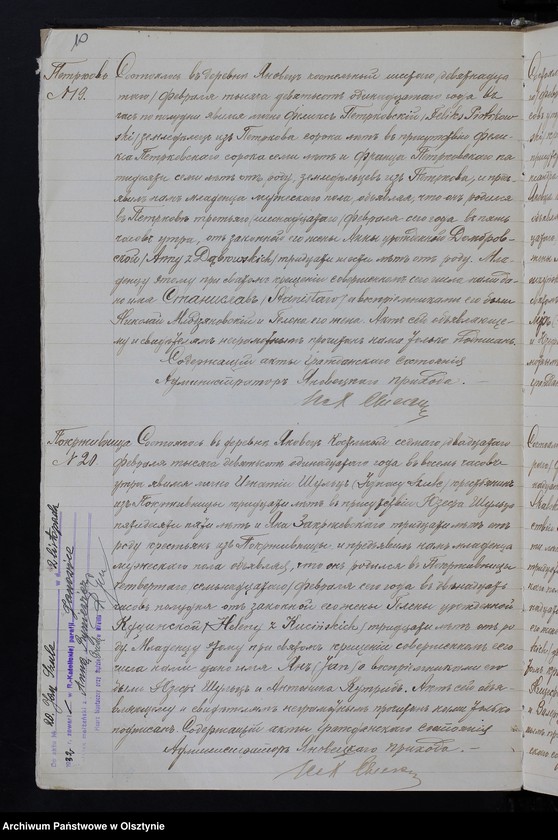 10
Петрково Состоялось въ деревнѣ Яновецъ костельный шестого /девятнадца
№ 19. таго/ февраля тысяча девятьсотъ одиннадцатаго года въ
часъ по полудни явился лично Феликсъ Петрковскій /Feliks Piotrkow
ski/ земледѣлецъ изъ Петркова сорока лѣтъ въ присутствіи Фели
кса Петрковскаго сорока семи лѣтъ и Франца Петрковскаго пя
тидесяти семи лѣтъ отъ роду, земледѣльцевъ изъ Петркова, и пред
явилъ намъ младенца мужескаго пола, объявляя, что онъ родился
въ Петрковѣ третьяго /шестнадцатаго/ февраля сего года въ пять
часовъ утра, отъ законной его жены Анны урожденной Домбров
ской /Anny z Dąbrowskich/ тридцати лѣтъ отъ роду. Мла
денцу этому при святомъ крещеніи совершенномъ сего числа нами да
но имя Станиславъ /Stanisław/ а воспріемниками его были
Николай и Елена его жена. Актъ сей объявляюще
му и свидѣтелямъ неграмотнымъ прочитанъ нами только подписанъ.
Содержащій акты гражданскаго состоянія
Администраторъ Яновецкаго прихода. —
Покрживница Состоялось въ деревнѣ Яновецъ Костельный седьмого /двадцатаго/
№ 20 февраля тысяча девятьсотъ одиннадцатаго года въ восемь часовъ
утра явился лично Игнатій Шульцъ /Ignacy Szulc/, крестьянинъ
изъ Покрживницы тридцати лѣтъ въ присутствіи Юзефа Шульца
пятидесяти пяти лѣтъ и Яна Закржевскаго тридцати лѣтъ отъ
роду крестьянъ изъ Покрживницы и предъявилъ намъ младенца
мужескаго пола объявляя, что онъ родился въ Покрживницы
четвертаго /семнадцатаго/ февраля сего года въ двѣнадцать
часовъ полудня отъ законной его жены Елены урожденной
Кусинской /Heleny z Kusińskich/ тридцати лѣтъ отъ ро
ду. Младенцу этому при святомъ крещеніи совершенномъ сего
числа нами дано имя Янъ /Jan/ а воспріемниками его
были Юзефъ Шульцъ и Антонина. Актъ сей объя
вляющему и свидѣтелямъ неграмотнымъ прочитанъ нами только
подписанъ. Содержащій акты гражданскаго состоянія
Администраторъ Яновецкаго прихода. —
Do aktu №
20. Jan Szulc
2. listopada
1932 r. zawarł w R.-Katolickiej parafji Janowiec
Anną
Archiwum Państwowe w Olsztynie